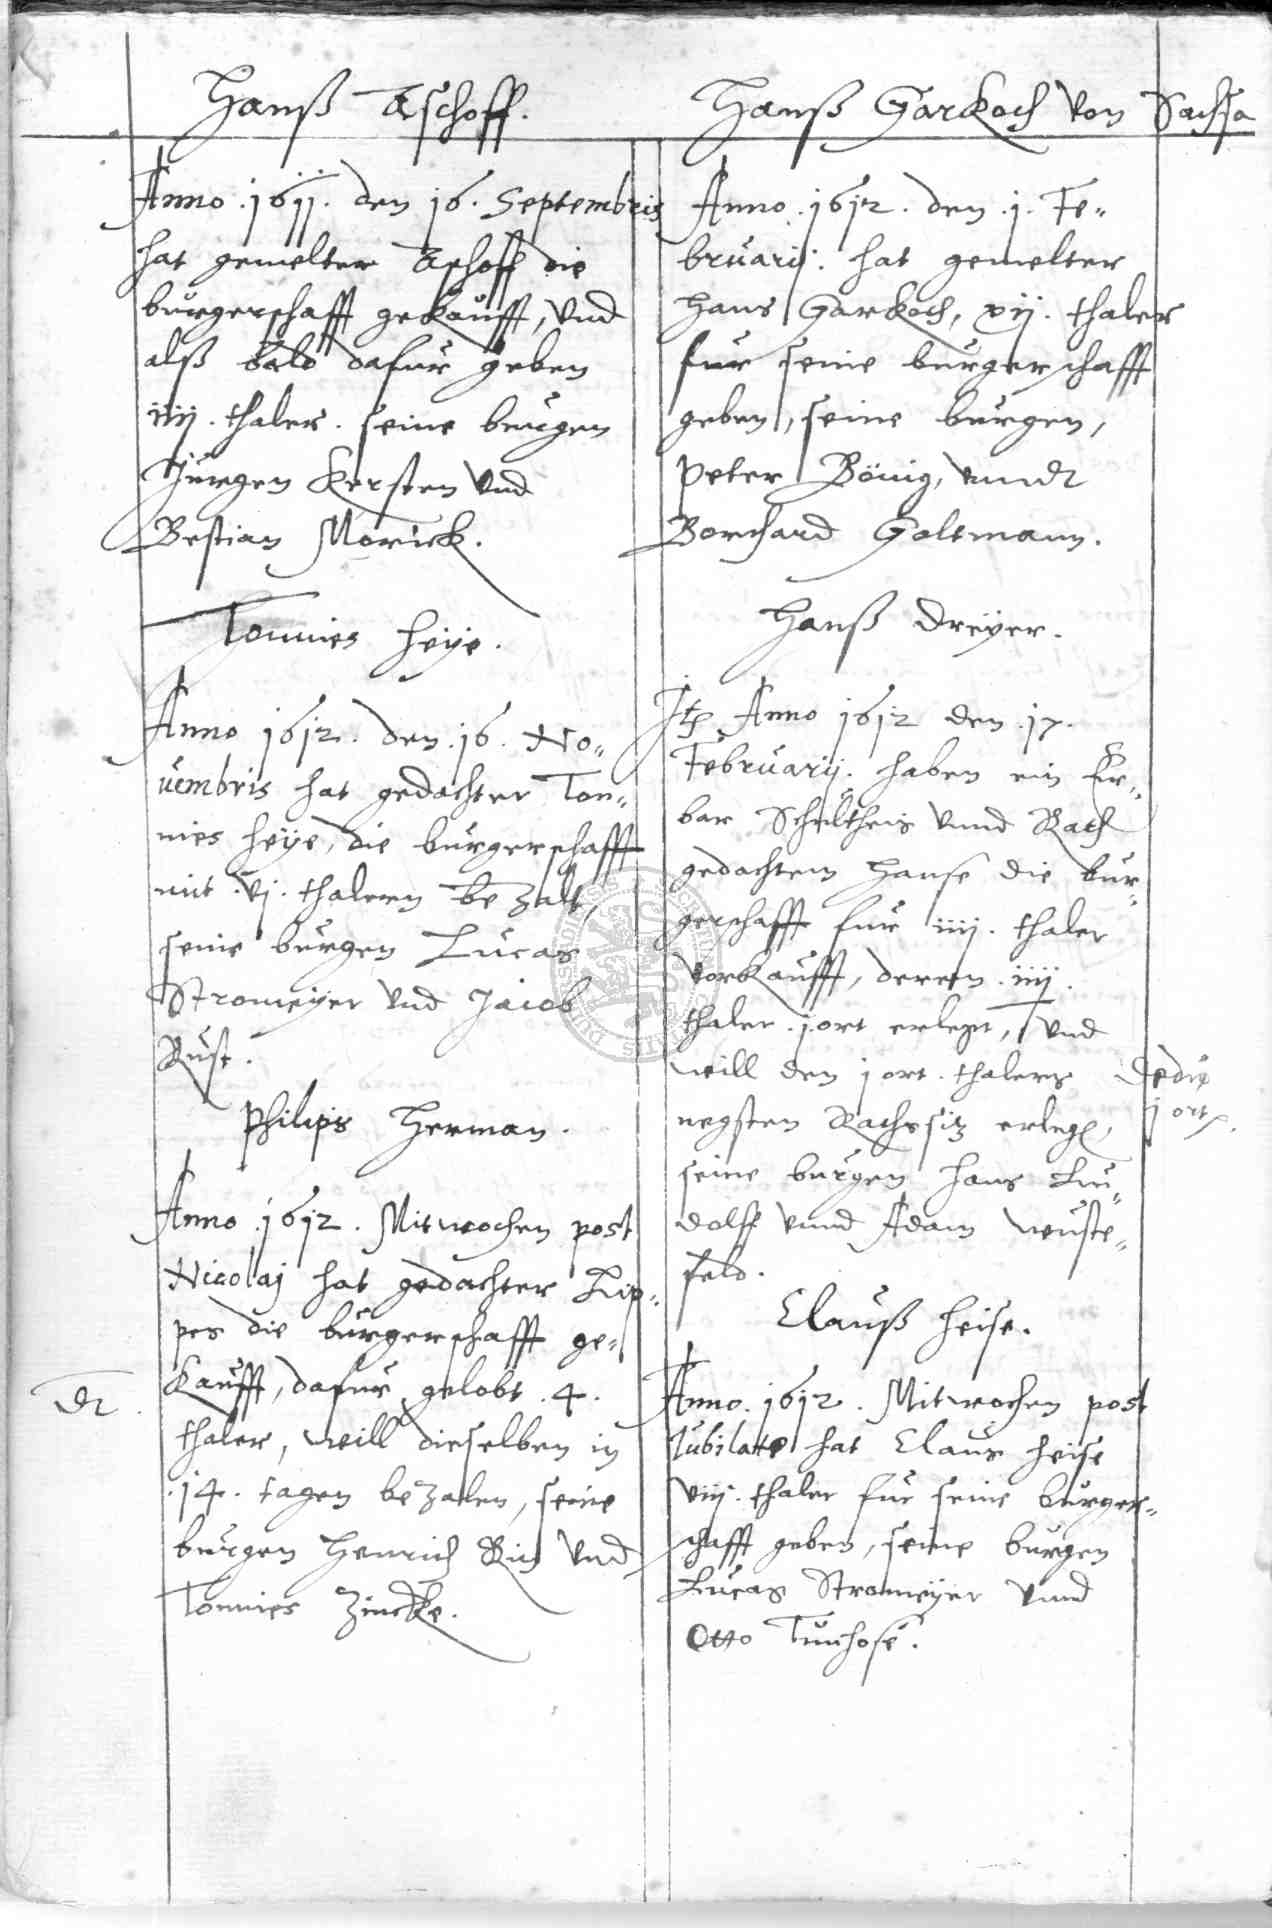 Hanß Aschoff.
Anno .1611. den 16. Septembris
hat gemelter Aschoff die
burgerschafft gekaufft, vnd
alß bald dafur geben
iiij. thaler. seine burgen
Jurgen Kersten vnd
Bestian Morick.
Tonnies Heÿe.
Anno 1612. den .16. No„
uembris hat gedachter Ton„
nies Heÿe, die burgerschafft
mit .vj. thalern bezalt,
seine burgen Lucas
Stromeÿer vnd Jacob
Rust.
Philips Herman.
Anno .1612. Mitwochen post
Nicolaj hat gedachter Lip„
pes die burgerschafft ge„
kaufft, dafur gelobt .4.
thaler, will dieselben in
.14. tagen bezalen, seine
burgen Henrich vnd
Tonnies Zincke.
Hanß Garkoch von Sachsa
Anno .1612. den .1. Fe„
bruarij. hat gemelter
Hans Garkoch, xij. thaler
fur seine burgerschafft
geben, seine burgen,
Peter Bönig, vnndt
Borchard Goltmann.
Hanß Dreÿer.
Anno 1612 den .17.
Februarij. haben ein Er„
bar Schultheis vnnd Rath
gedachtem Hanse die bur„
gerschafft fur iiij. thaler
vorkaufft, deren .iiij.
thaler .j ort erlegt, vnd
will den j ort. thalers
negsten Rathssitz erlegen,
seine burgen Hans Lu„
dolff vnnd Adam Wuste„
feld.
dedit
j ort.
Clauß Heise.
Anno .1612. Mitwochen post
Jubilate hat Claus Heise
viij. thaler fur seine burger„
schafft geben, seine burgen
Lucas Stromeÿer vnnd
Otto Tunhose.
dt